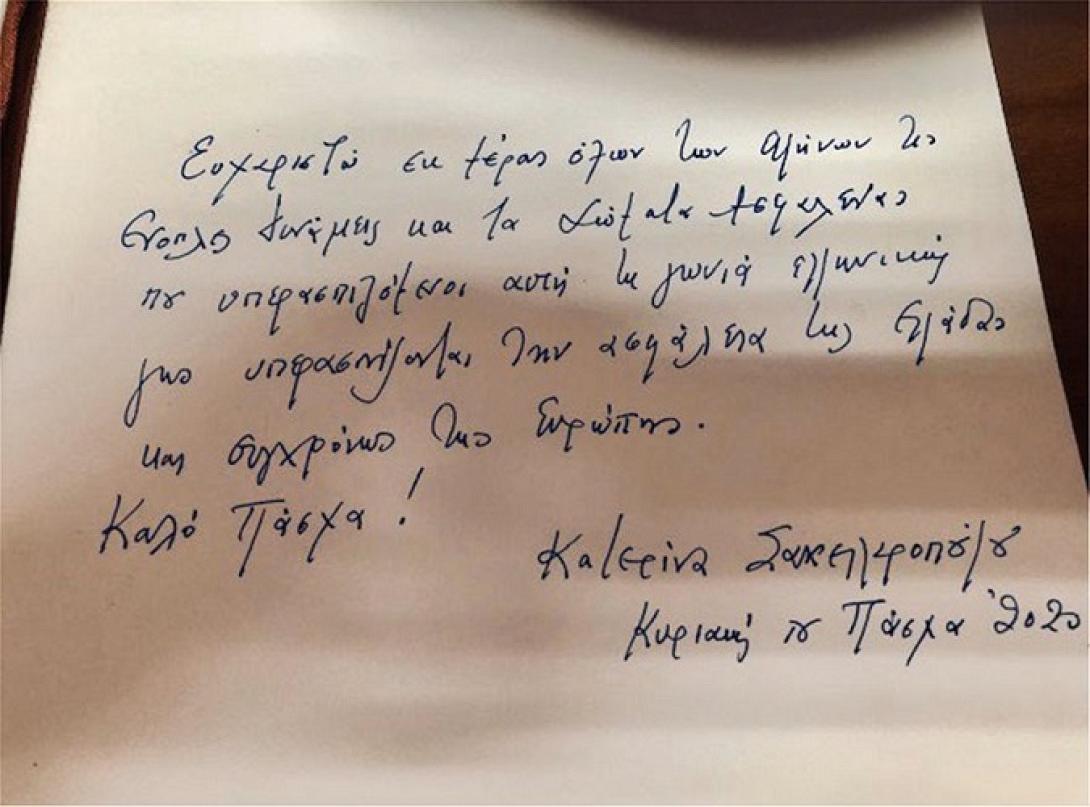 Ευχαριστώ εκ μέρους όλων των Ελλήνων τις
Ένοπλες Δυνάμεις και τα Σώματα Ασφαλείας
που υπερασπιζόμενοι αυτή τη γωνιά ελληνικής
γης υπερασπίζονται την ασφάλεια της Ελλάδας
και συγχρόνως της Ευρώπης.
Καλό Πάσχα!
Κατερίνα Σακελλαροπούλου
Κυριακή του Πάσχα 2020